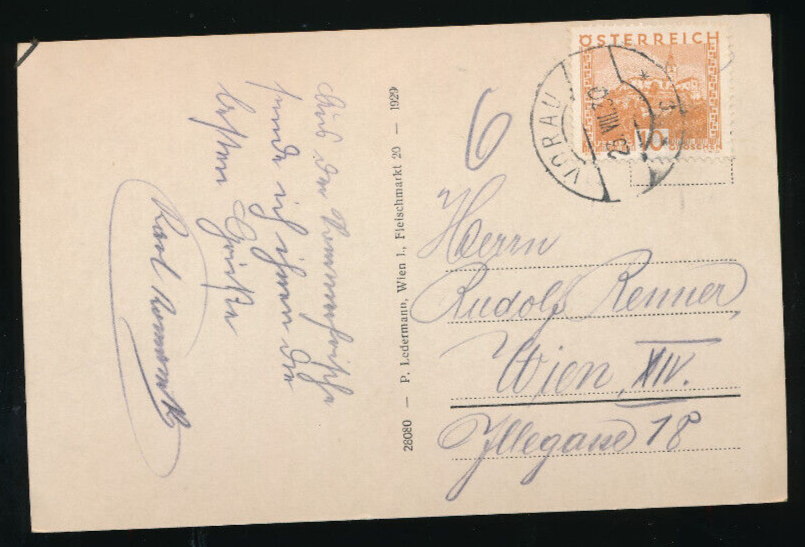 ÖSTERREICH
10
GROSCHEN
VORAU
23. VIII. 30
* 3
6
Herrn
Rudolf Renner,
Wien, XIV.
Illegasse 18
28080 — P. Ledermann, Wien I., Fleischmarkt 20 — 1929
Aus der
sende ich Ihnen die
besten Grüße
Karl